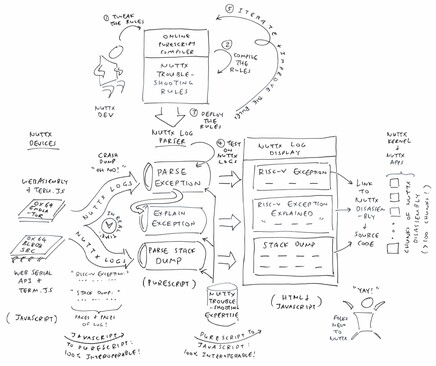 ① TWEAK
THE RULES
ONLINE
PURESCRIPT
COMPILER
NUTTX
TROUBLE-
SHOOTING
RULES
② COMPILE
THE RULES
⑤ ITERATE & IMPROVE
THE RULES
NUTTX
DEV
③ DEPLOY
THE RULES
NUTTX LOG
PARSER
④ TEST
ON NUTTX
LOGS
NUTTX
DEVICES
WEBASSEMBLY
& TERM.JS
OX64
EMULA-
TOR
OX64
BL808
SBC
WEB SERIAL
API & TERM.JS
(JAVASCRIPT)
CRASH
DUMP
"OH NO!"
NUTTX LOGS
NUTTX LOGS
IN REAL
TIME
"RISC-V EXCEPTION"
"STACK DUMP"
PAGES & PAGES
OF LOG!
JAVASCRIPT
TO PURESCRIPT:
100% INTEROPERABLE!
PARSE
EXCEPTION
EXPLAIN
EXCEPTION
PARSE STACK
DUMP
(PURESCRIPT)
NUTTX
TROUBLE-
SHOOTING
EXPERTISE
PURESCRIPT TO
JAVASCRIPT:
100% INTEROPERABLE!
NUTTX LOG
DISPLAY
RISC-V EXCEPTION
RISC-V EXCEPTION
EXPLAINED
STACK DUMP
(HTML &
JAVASCRIPT)
LINK
TO
NUTTX
DISASSEM-
BLY
& SOURCE
CODE
NUTTX
KERNEL
&
NUTTX
APPS
CHUNKS OF NUTTX
DISASSEMBLY
"YAY!"
FOLKS
NEW TO
NUTTX